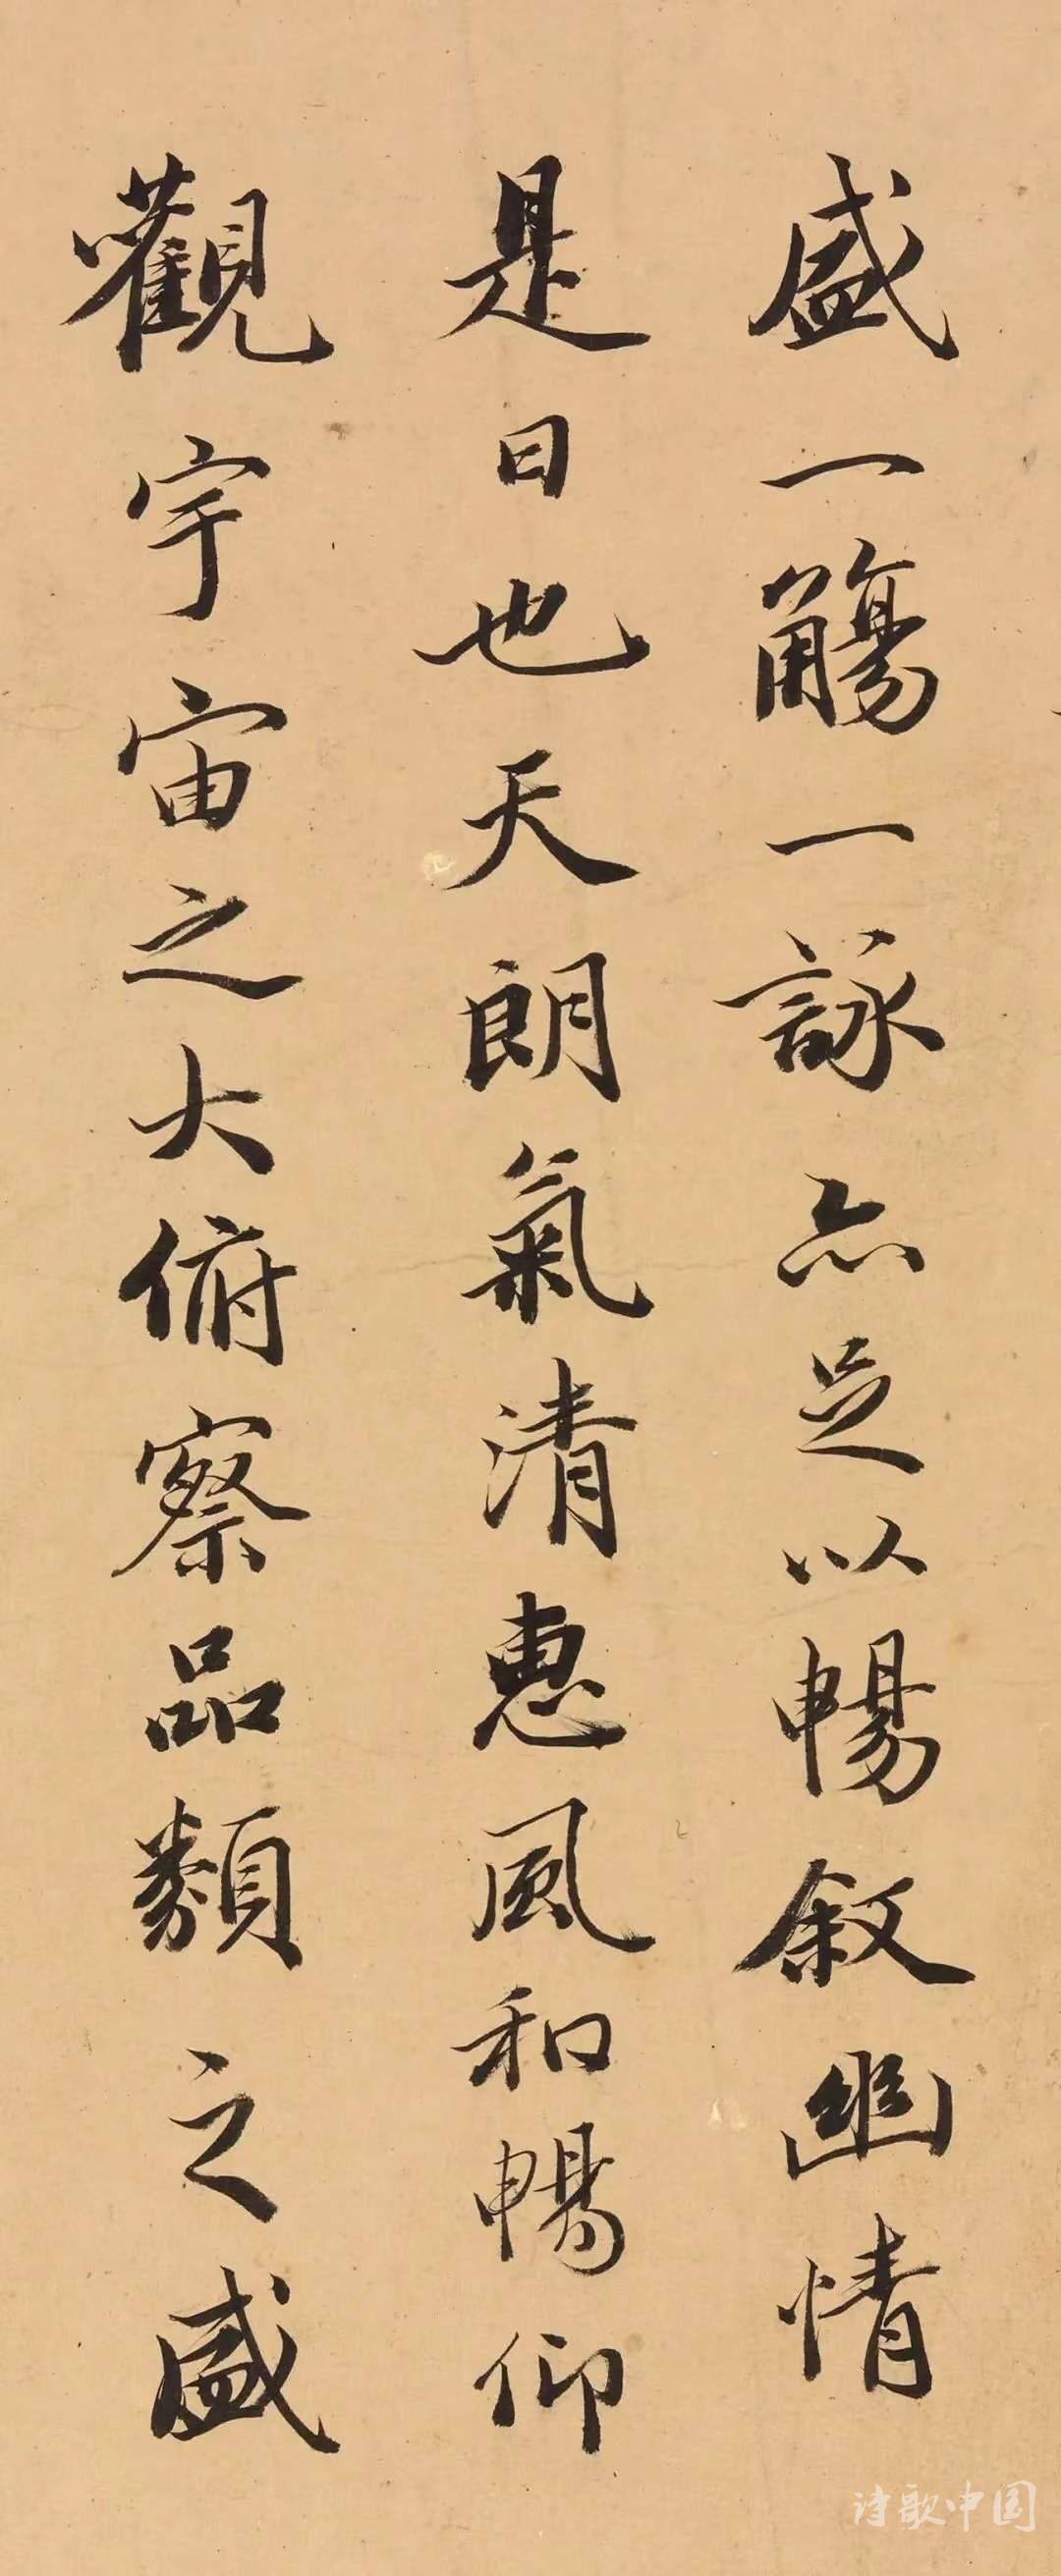 盛一觴一詠亦足以暢敘幽情
是日也天朗氣清惠風和暢仰
觀宇宙之大俯察品類之盛
诗歌中国